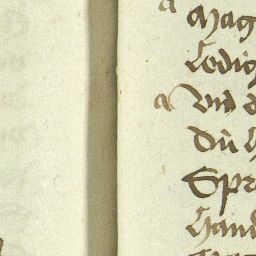 a Mag
Ledig
a Vnd d
Dů h
Spr
Hand